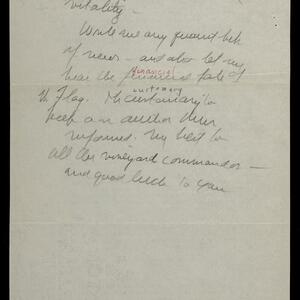 vitality —
Write me any good bit
of news — and also let me
hear the financial fate of
financial
customary
Flag. customary to
keep an author
informed. My best to
all the vineyard commandos —
and good luck to you